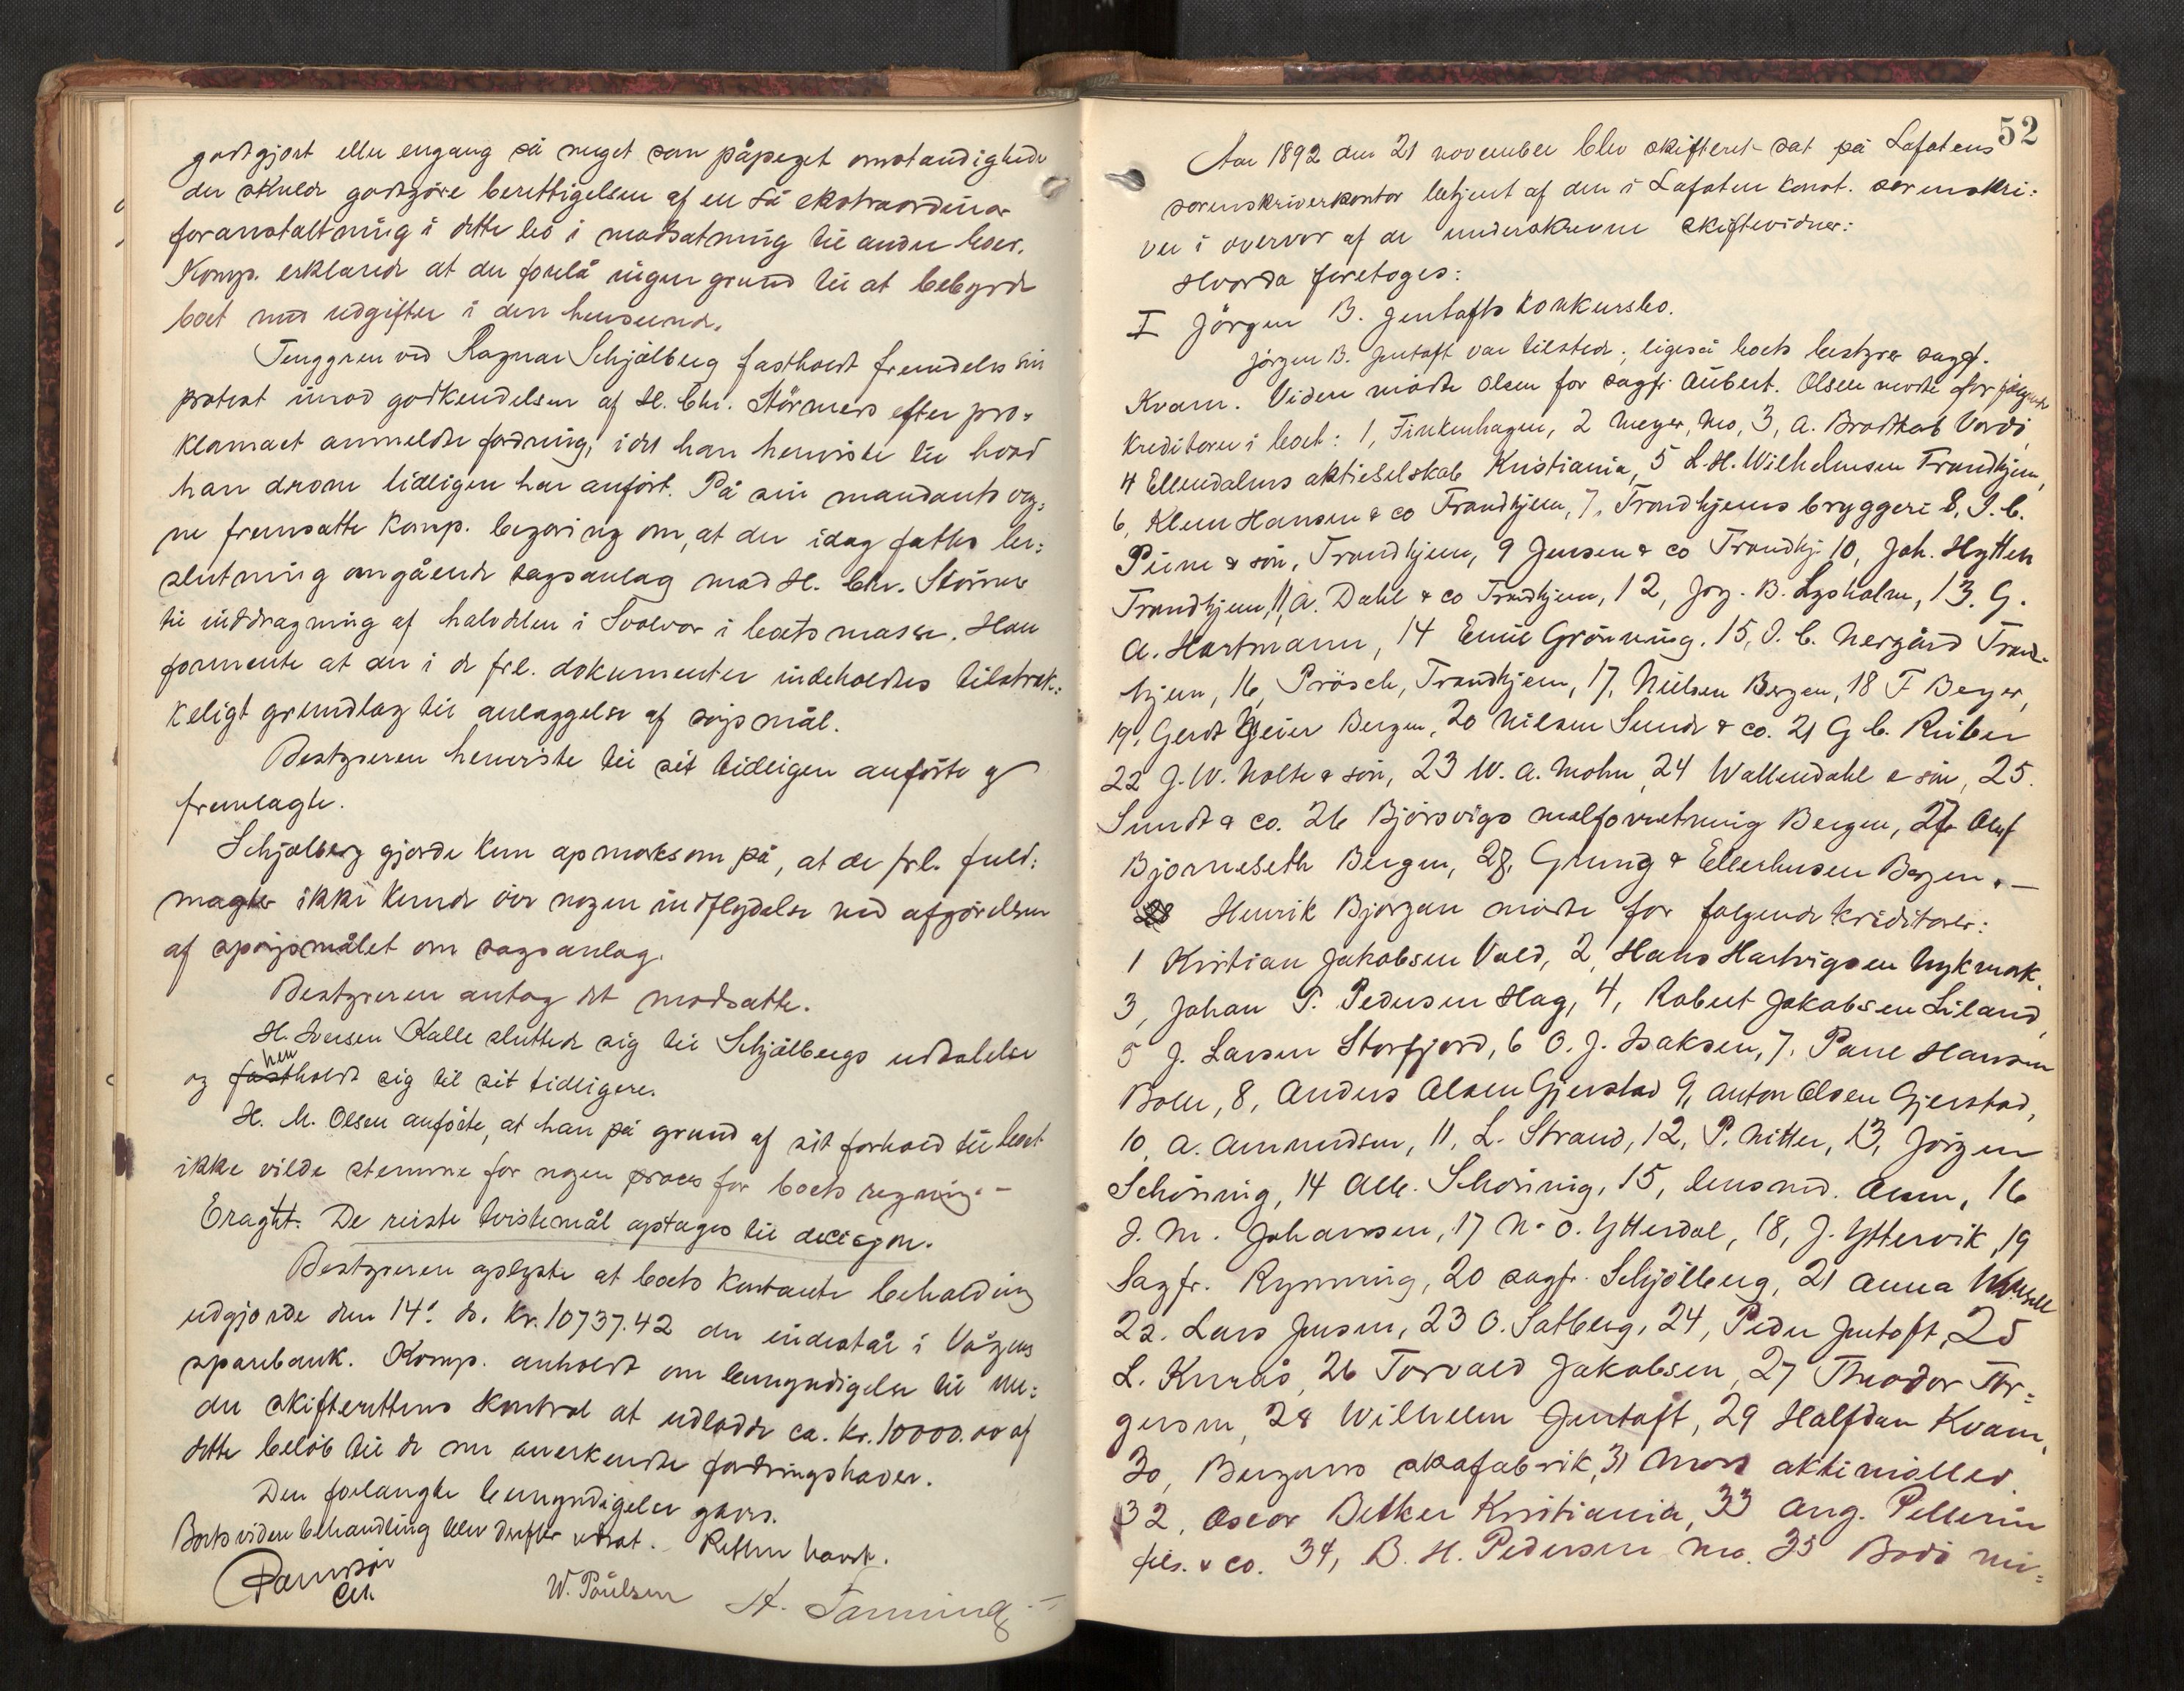 godtgjort eller engang så meget som påpeget omstændigheder
der skulde godtgöre berettigelsen af en så ekstraordinær
foranstaltning i dette bo i modsætning til andre boer.
Komp. erklærede at der forelå ingen grund til at bebyrde
boet med udgifter i den henseende.
Tenggren ved Ragnar Schjölberg fastholdt fremdeles sin
protest imod godkendelsen af H. Chr. Störmers efter pro=
klamaet anmeldte fordring, idet han henviste til hvad
han derom tidligere har anfört. På sin mandants veg=
ne fremsatte Komp. begjæring om, at der idag fattes be=
slutning angående sagsanlæg mod H. Chr. Störmer
til inddragning af halvdelen i Svolvær i boets masse. Han
formente at der i de frl. dokumenter indeholdtes tilstræk=
keligt grundlag til anlæggelse af søgsmål.
Bestyreren henviste til sit tidligere anförte og
fremlagte.
Schjölberg gjorde kun opmærksom på, at de frl. fuld=
magter ikke kunde öve nogen indflydelse ved afgörelsen
af spörgsmålet om sagsanlæg.
Bestyreren antog det modsatte.
H. Iversen Kalle sluttede sig til Schjölbergs udtalelse
og fastholdt hen sig til sit tidligere.
H. M. Olsen anförte, at han på grund af sit forhold til boet
ikke vilde stemme for nogen proces for boets regning. –
Eragtet: De reiste tvistemål optages til decisjon.
Bestyreren oplyste at boets kontante beholdning
udgjorde den 14. ds. kr. 10737.42 der indestår i Vågens
sparebank. Komp. anholdt om bemyndigelse til un=
der skifterettens kontrol at udlodde ca. kr. 10000.00 af
dette belöb til de nu anerkendte fordringshaver.
Den forlangte bemyndigelse gaves.
Boets videre behandling blev derefter udsat. Retten hævet.
W. Paulsen H. Tanning
52
Aar 1892 den 21 november blev skifteret sat på Lofotens
sorenskriverkontor betjent af den i Lofoten const. sorenskri=
ver i overvær af de underskrevne skiftevidner:
Hvorda foretoges:
I Jörgen B. Jentofts konkursbo.
Jörgen B. Jentoft var tilstede; ligeså boets bestyrer sagf.
Kvam. Videre mödte Olsen for sagfr. Aubert. Olsen mødte for følgende
kreditorer i boet: 1, Finkenhagen, 2 Meyer, Mo, 3, A. Brodtkorb Vardö,
4 Ellendalens aktieselskab Kristiania, 5 L. H. Wilhelmsen Trondhjem,
6, Klem Hansen & co Trondhjem, 7, Trondhjems bryggeri 8, I. C.
Piene & sön, Trondhjem, 9 Jensen & co Trondhj. 10, Joh. Hytten
Trondhjem, 11, A. Dahl & co Trondhjem, 12, Jörg. B. Lysholm, 13. G.
A. Hartmann, 14 Emil Grönning, 15, O. C. Nergård Trond=
hjem, 16, Prösch, Trondhjem, 17, Nielsen Bergen, 18 F Beyer,
19, Gerdt Meier Bergen, 20 Nilsen Sundt & co. 21 G C. Rieber
22 J. W. Nolte & sön, 23 W. A. Mohn, 24 Wallendahl & sön, 25.
Sundt & co. 26 Björsvigs melforretning Bergen, 27 Oluf
Bjorneseth Bergen, 28, Grung & Ellerhusen Bergen. –
Henrik Bjørgan mødte for følgende kreditorer:
1 Kristian Jakobsen Vold, 2, Hans Hartvigsen Nykmark.
3, Johan P. Pedersen Hag, 4, Robert Jakobsen Liland,
5 J. Larsen Storfjord, 6 O. J. Isaksen, 7. Paul Hansen
Boen, 8, Anders Olsen Gjerstad 9, Anton Olsen Gjerstad,
10, A. Amundsen, 11, L. Strand, 12, P. Nitter, 13, Jörgen
Schöning, 14 Alb. Schöning, 15, lensmd. Aasen, 16
J. M. Johansen, 17 N. O. Ytterdal, 18, J. Yttervik, 19
Sagfr. Rynning, 20 sagfr. Schjölberg, 21 Anna
22. Lars Jensen, 23 O. Satberg, 24, Peder Jentoft, 25
L. Kurås, 26 Torvald Jakobsen, 27 Theodor Tor=
gersen, 28 Wilhelm Jentoft, 29 Halfdan Kvam,
30, Bergens skofabrik, 31 Moss aktiemölle
32, Oscar Betker Kristiania, 33 Aug. Pellerin
fils. & co. 34, B. H. Pedersen Mo. 35 Bodö mi=